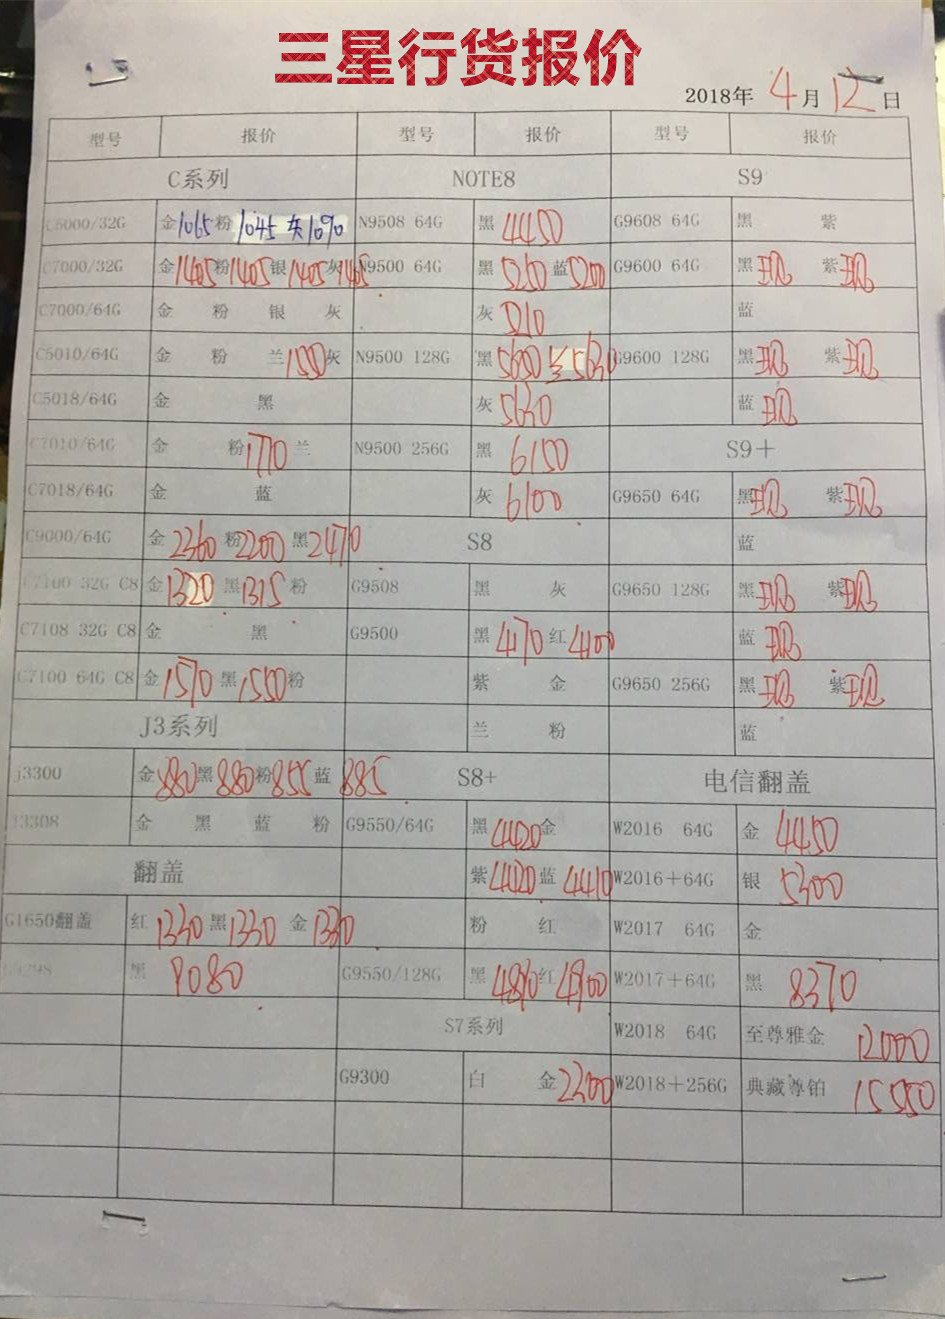 三星行货报价
2018年 4月 12日
型号 报价 型号 报价 型号 报价
C系列 NOTE8 S9
C5000/32G 金1065 粉1045 灰1090 N9508 64G 黑4450 G9608 64G 黑 紫
C7000/32G 金1405 粉1405 银1405 灰1405 N9500 64G 黑5260 蓝5200 G9600 64G 黑现 紫现
C7000/64G 金 粉 银 灰 灰 蓝
C5010/64G 金 粉 兰 灰 N9500 128G 黑5650 G9600 128G 黑现 紫现
C5018/64G 金 黑 灰 蓝现
C7010/64G 金 粉1770 兰 N9500 256G 黑6150 S9+
C7018/64G 金 蓝 灰6100 G9650 64G 黑现 紫现
C9000/64G 金2360 粉2200 黑2470 S8 蓝
C7100 32G C8 金1320 黑1315 粉 G9508 黑 灰 G9650 128G 黑现 紫现
C7108 32G C8 金 黑 G9500 黑4170 红4100 蓝现
C7100 64G C8 金1570 黑1550 粉 紫 金 G9650 256G 黑现 紫现
J3系列 兰 粉 蓝
J3300 金880 黑880 粉855 蓝885 S8+ 电信翻盖
J3308 金 黑 蓝 粉 G9550/64G 黑4420 金 W2016 64G 金4450
翻盖 紫4420 蓝4410 W2016+64G 银5300
G1650翻盖 红1330 黑1330 金1330 粉 红 W2017 64G 金
黑 G9550/128G 黑 红4900 W2017+64G 黑8370
S7系列 W2018 64G 至尊雅金 12000
G9300 白 金2200 W2018+256G 典藏尊铂 15550